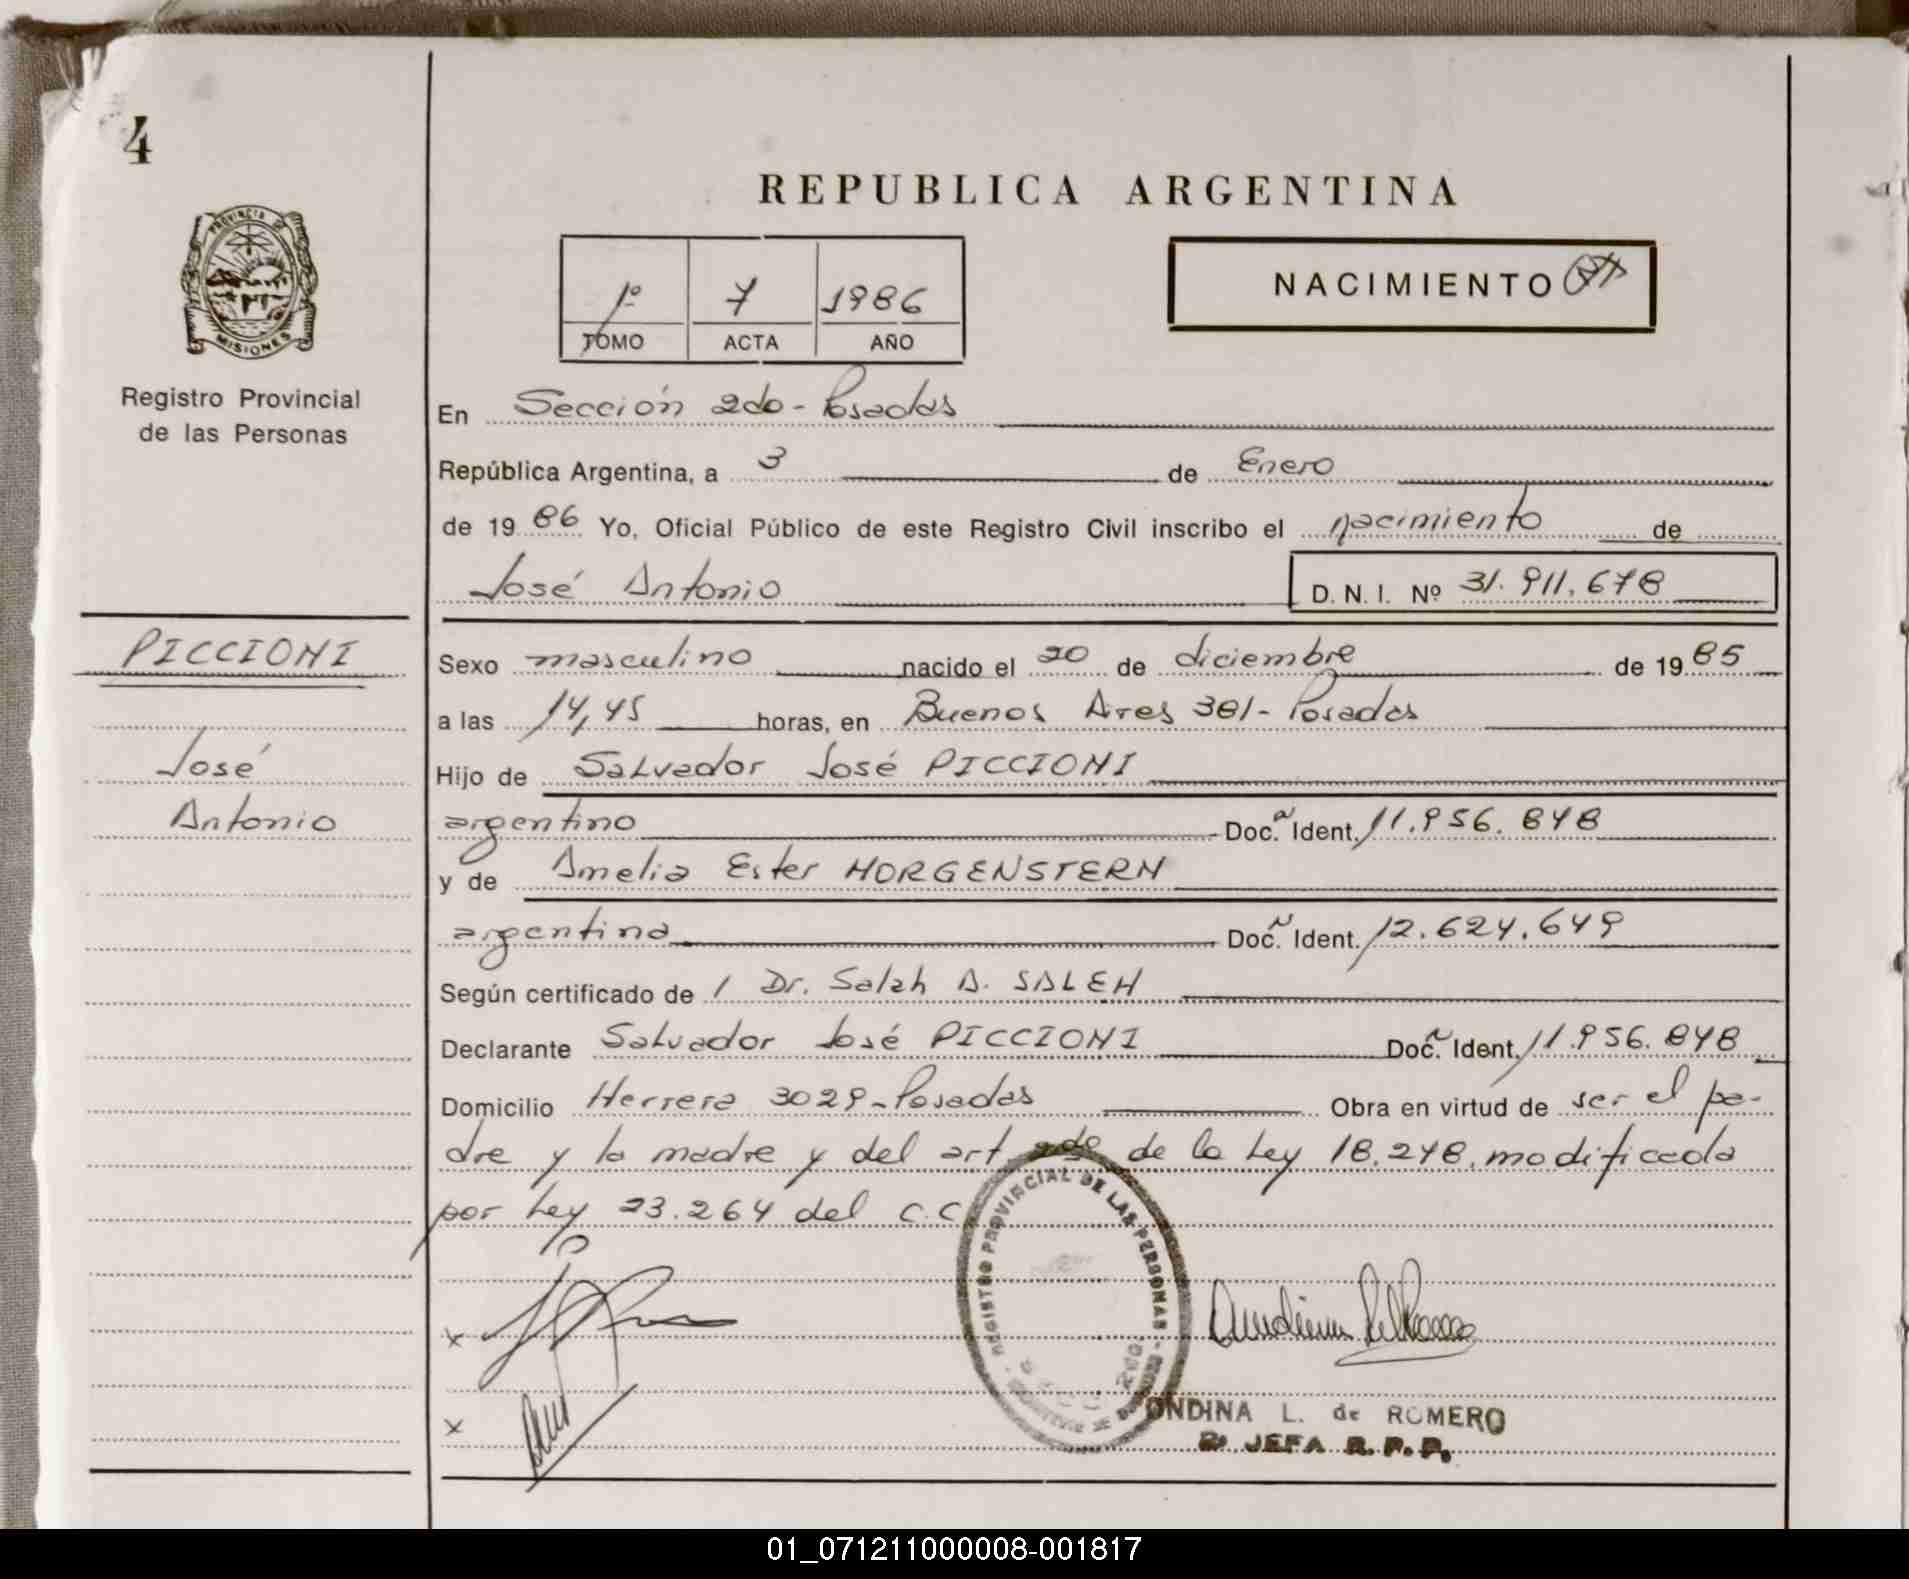 4
REPUBLICA ARGENTINA
PROVINCIA DE
MISIONES
Registro Provincial
de las Personas
1º 7 1986
TOMO ACTA AÑO
NACIMIENTO
En Sección 2do - Posadas
República Argentina, a 3 de Enero
de 1986 Yo, Oficial Público de este Registro Civil inscribo el nacimiento de
José Antonio D. N. I. Nº 31.911.678
PICCIONI
José
Antonio
Sexo masculino nacido el 20 de diciembre de 1985
a las 14,45 horas, en Buenos Aires 381 - Posadas
Hijo de Salvador José PICCIONI
argentino Doc. Ident. 11.956.848
y de Amelia Ester MORGENSTERN
argentina Doc. Ident. 12.624.649
Según certificado de / Dr. Salah A. SALEH
Declarante Salvador José PICCIONI Doc. Ident. 11.956.848
Domicilio Herrera 3029 - Posadas Obra en virtud de ser el pa-
dre y la madre y del art 2do de la Ley 18.248, modificada
por Ley 23.264 del C.C
REGISTRO PROVINCIAL DE LAS PERSONAS
ONDINA L. de ROMERO
JEFA R. P. P.
01_071211000008-001817